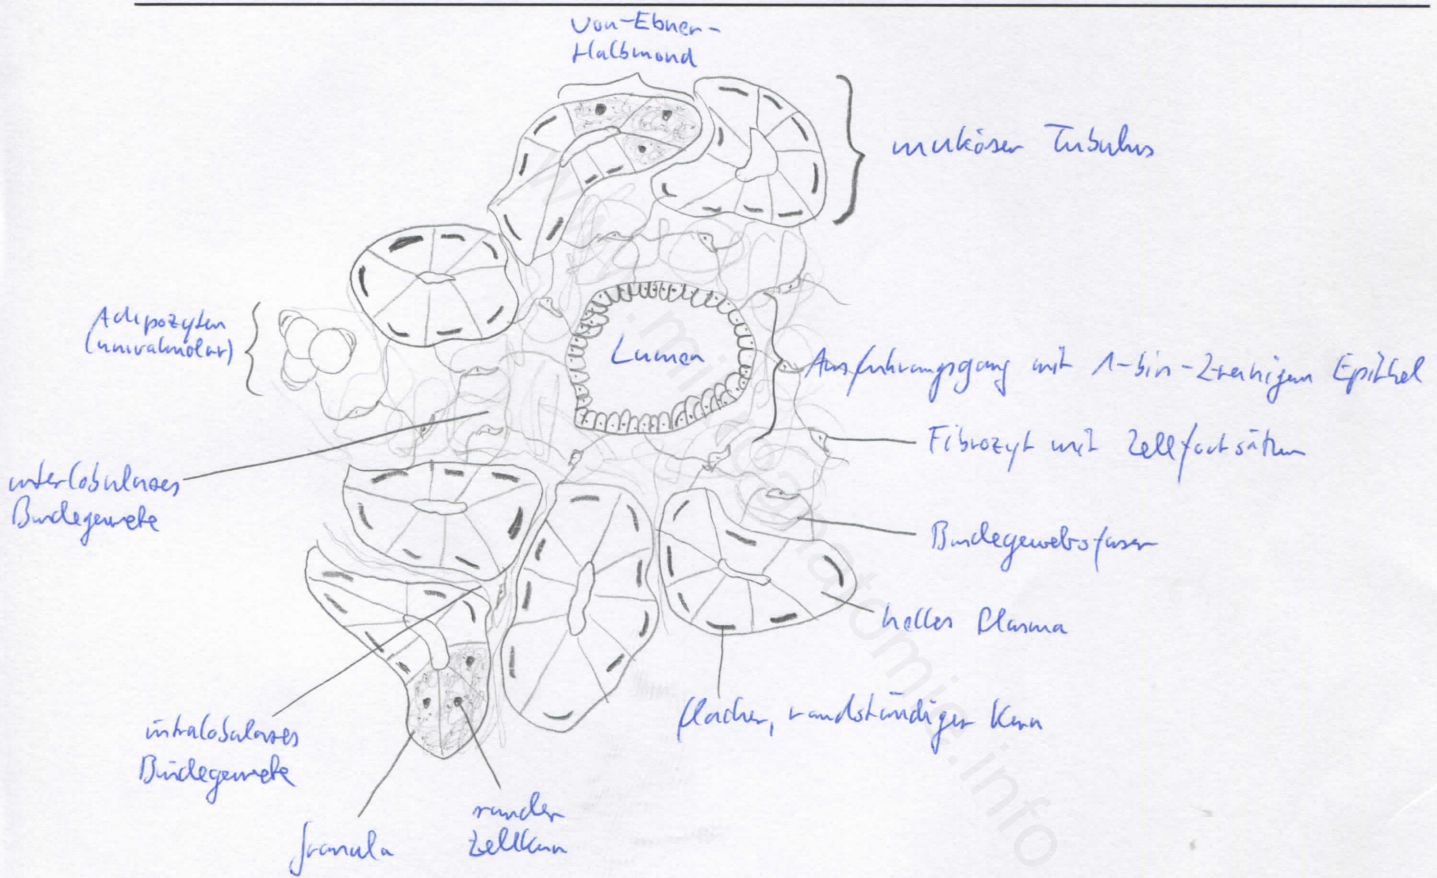 von-Ebner-
Halbmond
muköser Tubulus
Adipozyten
(univakuolar)
Lumen
Ausführungsgang mit 1-bis-2-reihigem Epithel
Fibrozyt mit Zellfortsätzen
interlobuläres
Bindegewebe
Bindegewebsfaser
helles Plasma
flacher, randständiger Kern
intralobuläres
Bindegewebe
runder
Zellkern
Granula